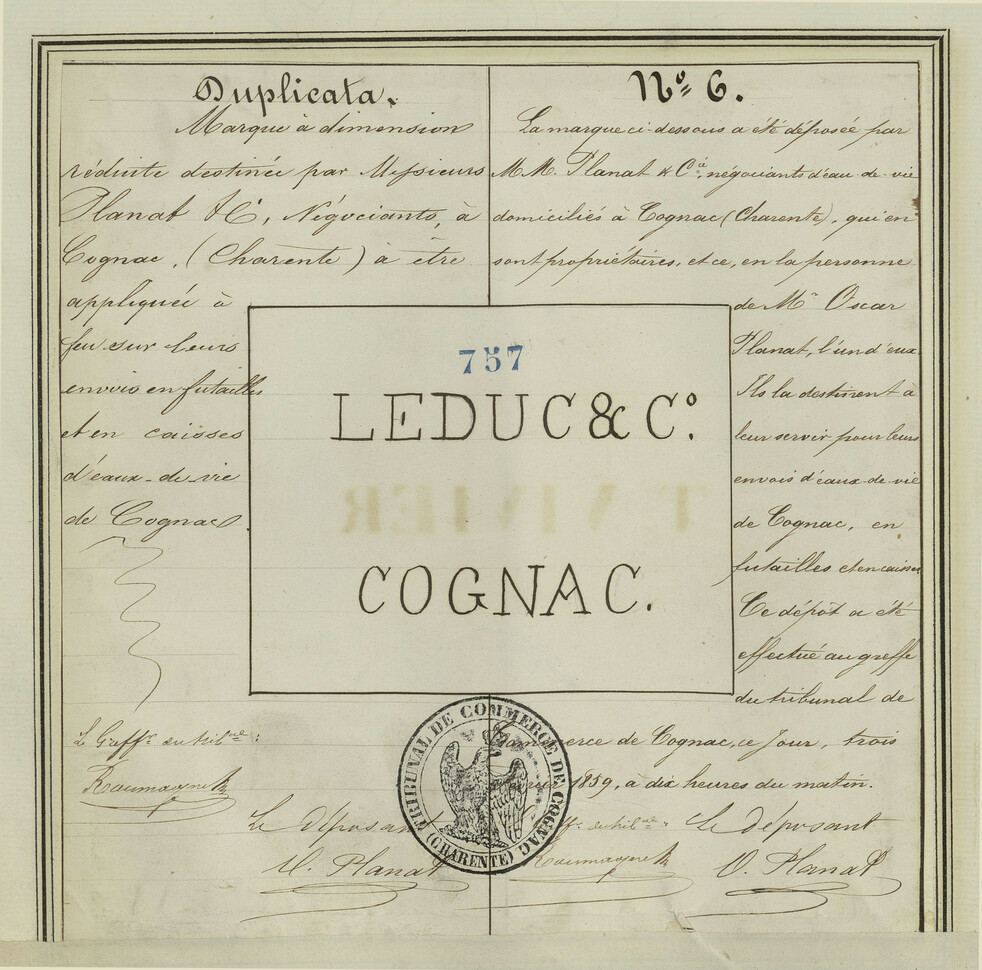 Duplicata.
Marque à dimension
réduite destinée par Messieurs
Planat & Cie, Négociants, à
Cognac, (Charente) à être
appliquée à
feu sur leurs
envois en futailles
et en caisses
d'eaux-de-vie
de Cognac.
Le Greffr. du tribal :
Le déposant
O. Planat
No. 6.
La marque ci-dessous a été déposée par
MM. Planat & Cie, négociants d'eau-de-vie
domiciliés à Cognac (Charente), qui en
sont propriétaires, et ce, en la personne
de Mr Oscar
Planat, l'un d'eux
Ils la destinent à
leur servir pour leurs
envois d'eaux-de-vie
de Cognac, en
futailles et en caisses
Ce dépôt a été
effectué au greffe
du tribunal de
Commerce de Cognac, ce jour, trois
1859, à dix heures du matin.
du tribal : Le déposant
O. Planat
757
LEDUC & Co.
COGNAC.
TRIBUNAL DE COMMERCE DE COGNAC
(CHARENTE)